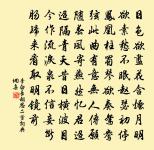 日色欲盡花含煙月明
欲素愁不眠趙瑟初停
鳳凰柱蜀琴欲奏鴛鴦
絃此曲有意無人傳願
隨春風寄燕然憶君迢
迢隔青天昔日橫波目
今作流淚泉不信妾
腸斷歸來看取明鏡前
李白長相思二首詞典
網書